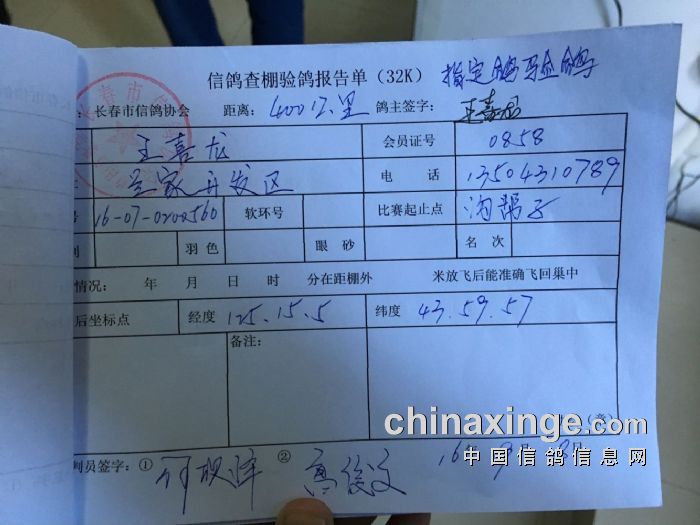 信鸽查棚验鸽报告单（32K） 指定鸽验鸽
：长春市信鸽协会 距离：400公里 鸽主签字：王喜龙
王喜龙 会员证号 0858
兰家开发区 电 话 13504310789
号 16-07-0200560 软环号 比赛起止点 沟帮子
别 羽色 眼砂 名次
情况： 年 月 日 时 分在距棚外 米放飞后能准确飞回巢中
后坐标点 经度 125.15.5 纬度 43.59.57
备注：
（章）
chinaxinge.com
中国信鸽信息网
16年9月
判员签字：① ②